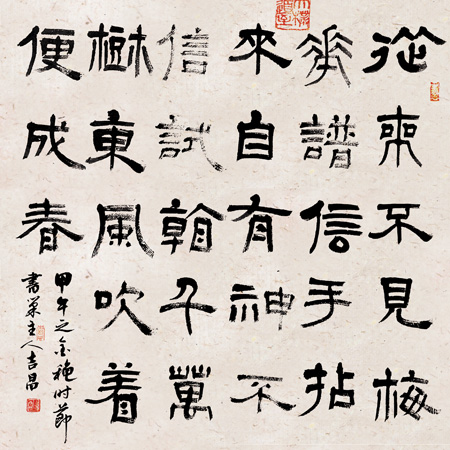 從來不見梅
花譜信手拈
來自有神不
信試看千萬
樹東風吹着
便成春
甲午之金穐时節
書巢主人吉昌